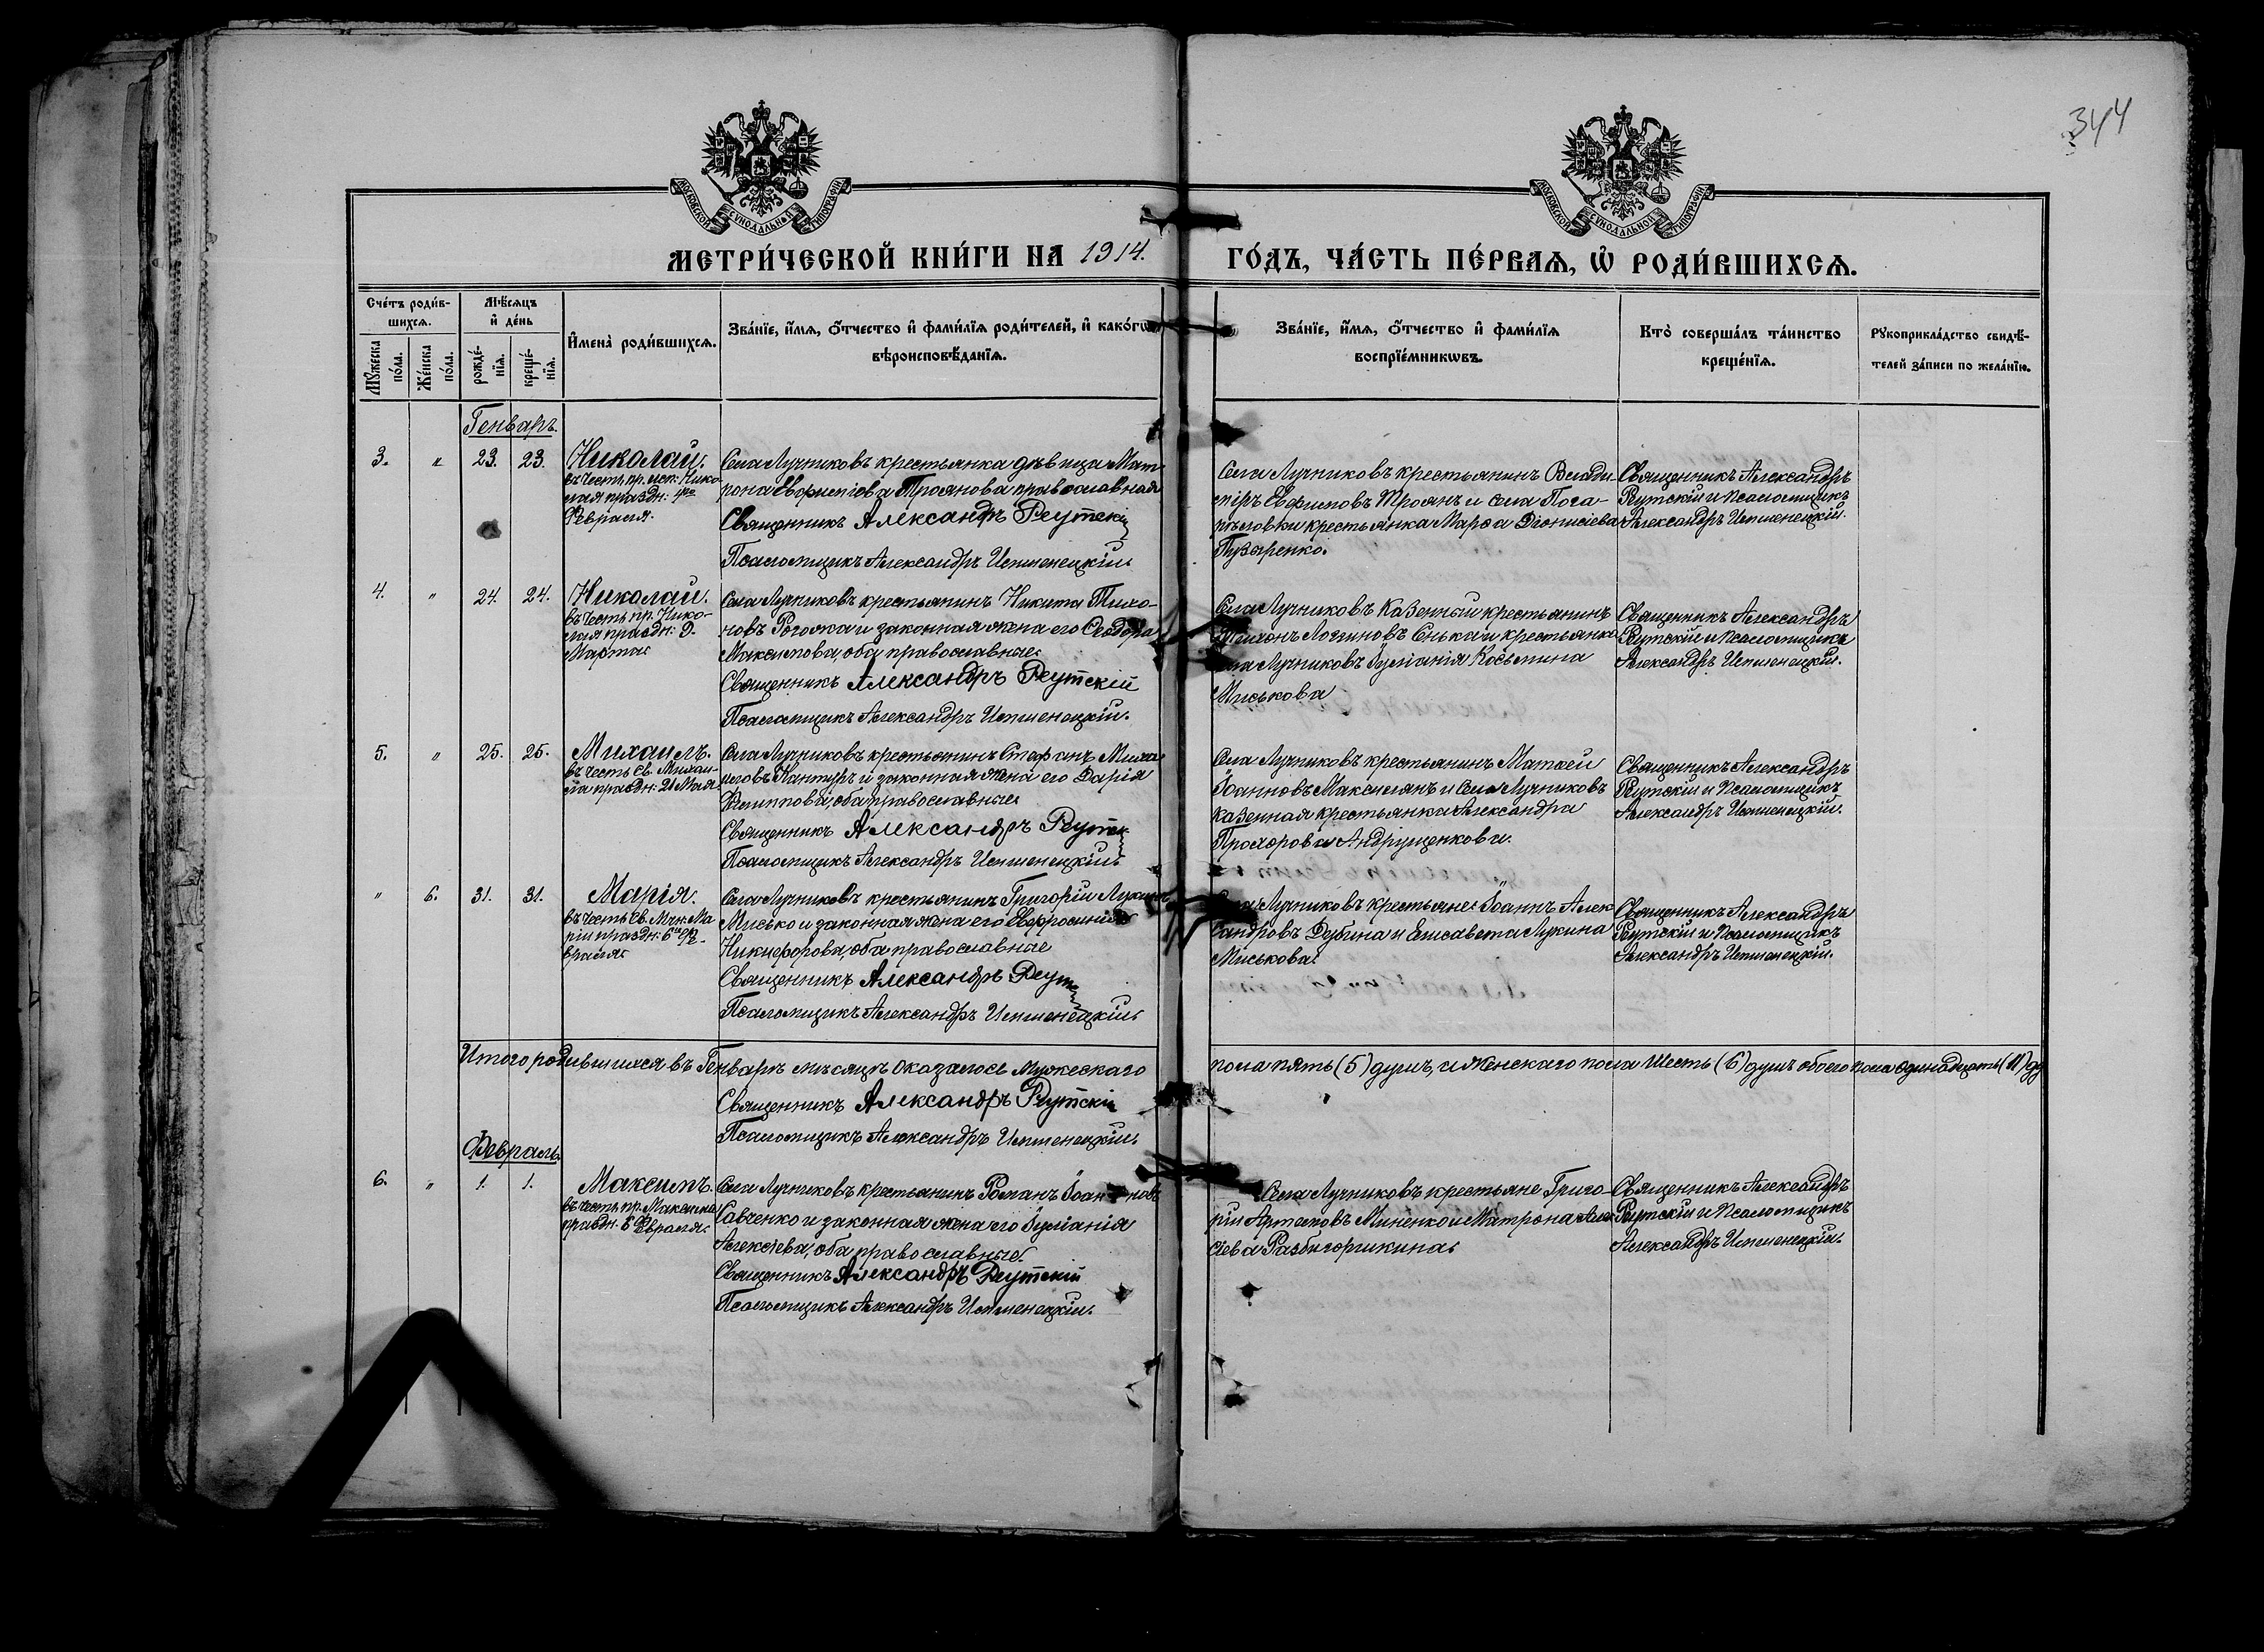 344
МОСКОВСКОЙ СѴНОДАЛЬНОЙ ТИПОГРАФІИ
МОСКОВСКОЙ СѴНОДАЛЬНОЙ ТИПОГРАФІИ
МЕТРИ́ЧЕСКОЙ КНИ́ГИ НА 1914. ГО́ДЪ, ЧА́СТЬ ПЕ́РВАѦ, Ѡ҆ РОДИ́ВШИХСѦ.
Сче́тъ роди́в-
шихсѧ.
Мꙋ́жеска
по́ла.
Же́нска
по́ла.
Мѣ́сѧцъ
и҆ де́нь
рожде́-
нїѧ.
креще́-
нїѧ.
И҆мена̀ роди́вшихсѧ.
Зва́нїе, и҆́мѧ, ѻ҆́тчество и҆ фами́лїѧ роди́телей, и҆ како́гѡ
вѣроисповѣ́данїѧ.
Зва́нїе, и҆́мѧ, ѻ҆́тчество и҆ фами́лїѧ
воспрїе́мникѡвъ.
Кто̀ соверша́лъ та́инство
креще́нїѧ.
Рꙋкоприкла́дство свидѣ́-
телей за́писи по жела́нїю.
Генварь.
3. " 23. 23.
Николай.
въ честь пр. исп. Нико-
лая праздн: 4го
Февраля.
Села Лучниковъ крестьянка дѣвица Мат-
рона Евфиміева Троянова православная
Священникъ Александръ Реутскі
Псаломщикъ Александръ
Села Лучниковъ крестьянинъ Влади-
міръ Евфимовъ Троянъ и села Пога-
рѣловки крестьянка Марѳа Діонисіева
Пузыренко.
Священникъ Александръ
Реутскій и Псаломщикъ
Александръ
4. " 24. 24.
Николай.
въ честь пр. Нико-
лая праздн: 9.
Марта
Села Лучниковъ крестьянинъ Никита Тихо-
новъ Рогожа и законная жена его Ѳеодора
Максимова, оба православные
Священникъ Александръ Реутскій
Псаломщикъ Александръ
Села Лучниковъ казенный крестьянинъ
Тихонъ Логиновъ Сенька и крестьянка
села Лучниковъ Іуліанія Косьмина
Миськова
Священникъ Александръ
Реутскій и Псаломщикъ
Александръ
5. " 25. 25.
Михаилъ.
въ честь Св. Михаи-
ла праздн: 21 Мая
Села Лучниковъ крестьянинъ Стефанъ Михаи-
ловъ Кантуръ и законная жена его Дарія
Филиппова, оба православные
Священникъ Александръ
Псаломщикъ Александръ
Села Лучниковъ крестьянинъ Матѳей
Іоанновъ Максимянъ и села Лучниковъ
казенная крестьянка Александра
Прохорова Андрущенкова.
Священникъ Александръ
Реутскій и Псаломщикъ
Александръ
" 6. 31. 31.
Марія.
въ честь Св. Мчц. Ма-
ріи праздн: 6го Фе-
враля
Села Лучниковъ крестьянинъ Григорій Лукинъ
Мисько и законная жена его Евфросинія
Никифорова, оба православные
Священникъ Александръ
Псаломщикъ Александръ
Села Лучниковъ крестьяне: Іоаннъ Алек-
сандровъ Дубина и Елисавета Лукина
Миськова
Священникъ Александръ
Реутскій и Псаломщикъ
Александръ
Итого родившихся въ Генварѣ мѣсяцѣ оказалось Мужескаго пола пять (5) душъ, и Женскаго пола Шесть (6) душъ обоего пола одинадцать (11) ду
Священникъ Александръ Реутскій
Псаломщикъ Александръ
Февраль.
6. " 1. 1.
Максимъ.
въ честь пр. Максима
праздн. 6 Февраля
Села Лучниковъ крестьянинъ Романъ Іоанновъ
Савченко и законная жена его Іуліанія
Алексіева, оба православные.
Священникъ Александръ Реутскій
Псаломщикъ Александръ
Села Лучниковъ крестьяне Григо-
рій Артемовъ Миненко и Матрона Алек-
сіева
Священникъ Александръ
Реутскій и Псаломщикъ
Александръ